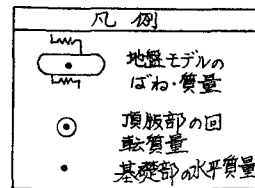 凡例
地盤モデルの
ばね・質量
頂版部の回
転質量
基礎部の水平質量